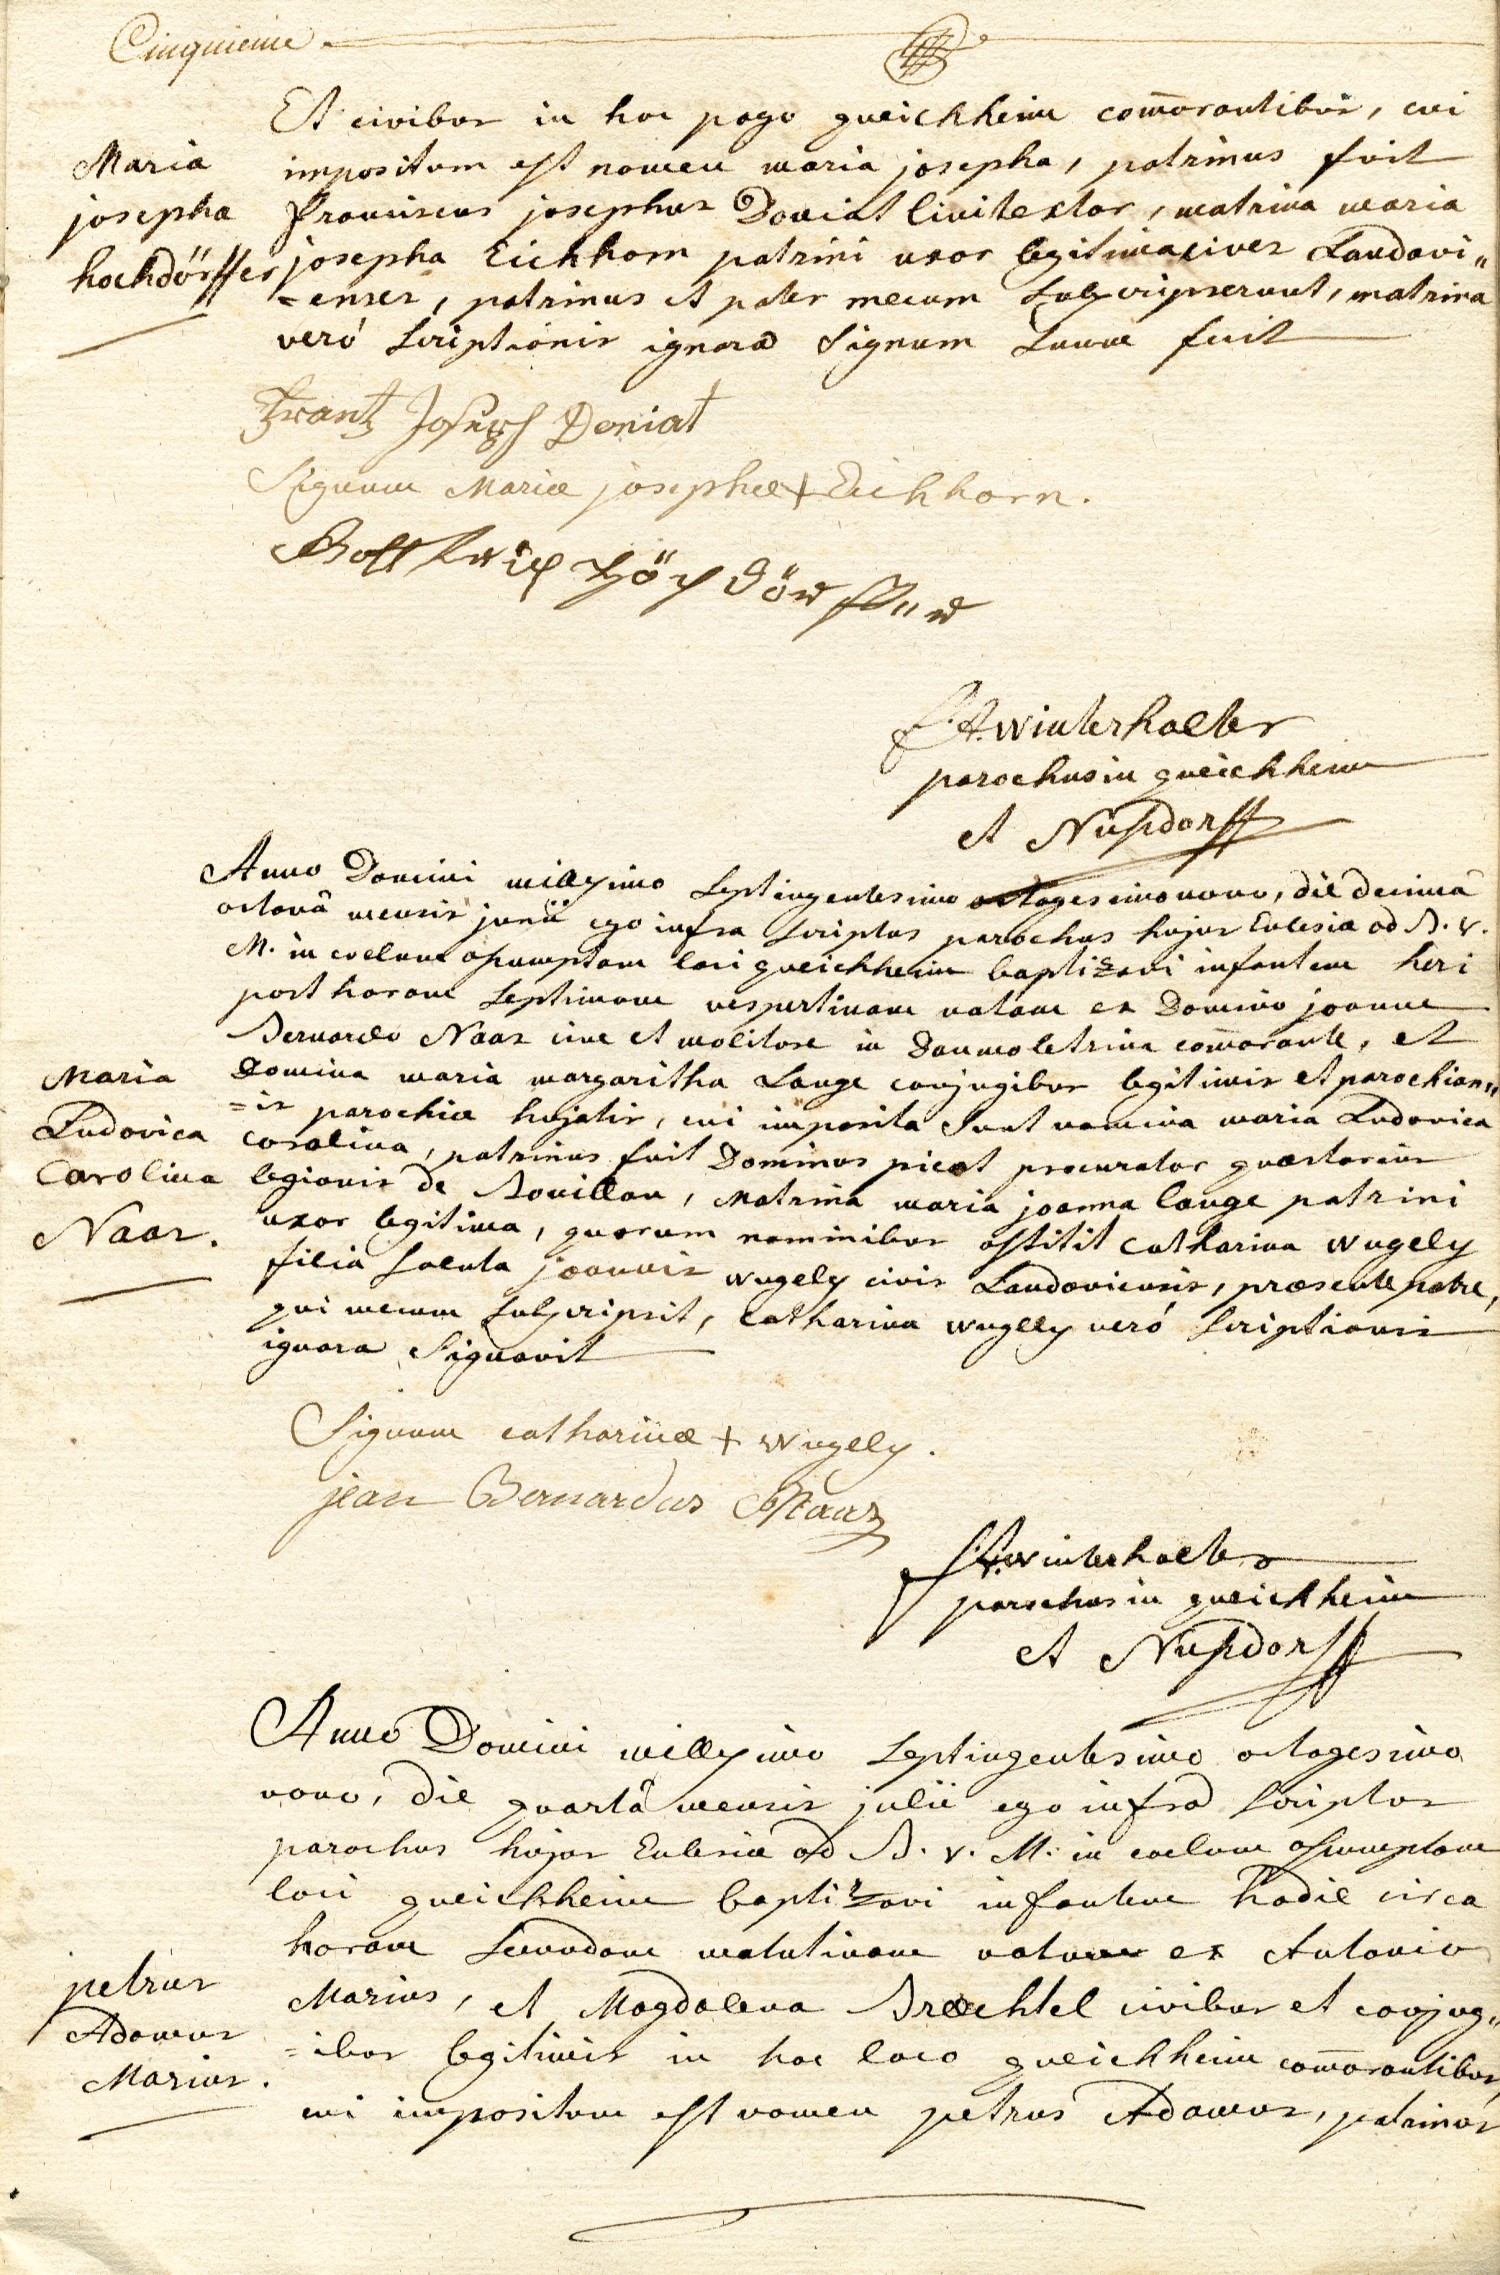 Cinquieme.
Et civibus in hoc pago queichheim com̄orantibus, cui
Maria
josepha
hochdörffer
impositum est nomen maria josepha, patrinus fuit
franciscus josephus Doniat linitextor, matrina maria
josepha Eichhorn patrini uxor legitima cives Landavi„
=enses, patrinus et pater mecum subscripserunt, matrina
veró scriptionis ignara signum suum fecit
Frantz Joseph Doniat
Signum Mariæ josephæ + Eichhorn.
Gottfrid Höchdörffer
f. A. winterhalter
parochus in queichheim
et Nusdorff
Anno Domini millesimo septingentesimo octogesimo nono, die decimâ
octavâ mensis junii ego infra scriptus parochus hujus Eclesiæ ad B. v.
M. in coelum assumptam loci queichheim baptizavi infantem heri
post horam septimam vespertinam natam ex Domino joanne
Bernardo Naar cive et molitore in Danmoletrina com̄orante, et
Maria
Ludovica
Carolina
Naar.
Domina maria margaritha Lange conjugibus legitimis et parochian„
=is parochiæ hujatis, cui imposita sunt nomina maria Ludovica
carolina, patrinus fuit Dominus picot procurator quæstorius
legionis de Bouillon, Matrina maria joanna lange patrini
uxor legitima, quorum nominibus astitit catharina wugely
filia soluta joannis wugely civis Landaviensis, præsente patre,
qui mecum subscripsit, catharina wugely veró scriptionis
ignara signavit
Signum catharinæ + wugely.
jean Bernardus Naar
f. A. winterhalter
parochus in queichheim
et Nusdorff
Anno Domini millesimo septingentesimo octogesimo
nono, die quartâ mensis julii ego infra scriptus
parochus hujus Eclesiæ ad B. v. M. in coelum assumptam
loci queichheim baptizavi infantem hodie circa
horam secundam matutinam natum ex Antonio
petrus
Adamus
Marius.
Marius, et Magdalena Bræchtel civibus et conjug„
=ibus legitimis in hoc loco queichheim com̄orantibus,
cui impositum est nomen petrus Adamus, patrinus